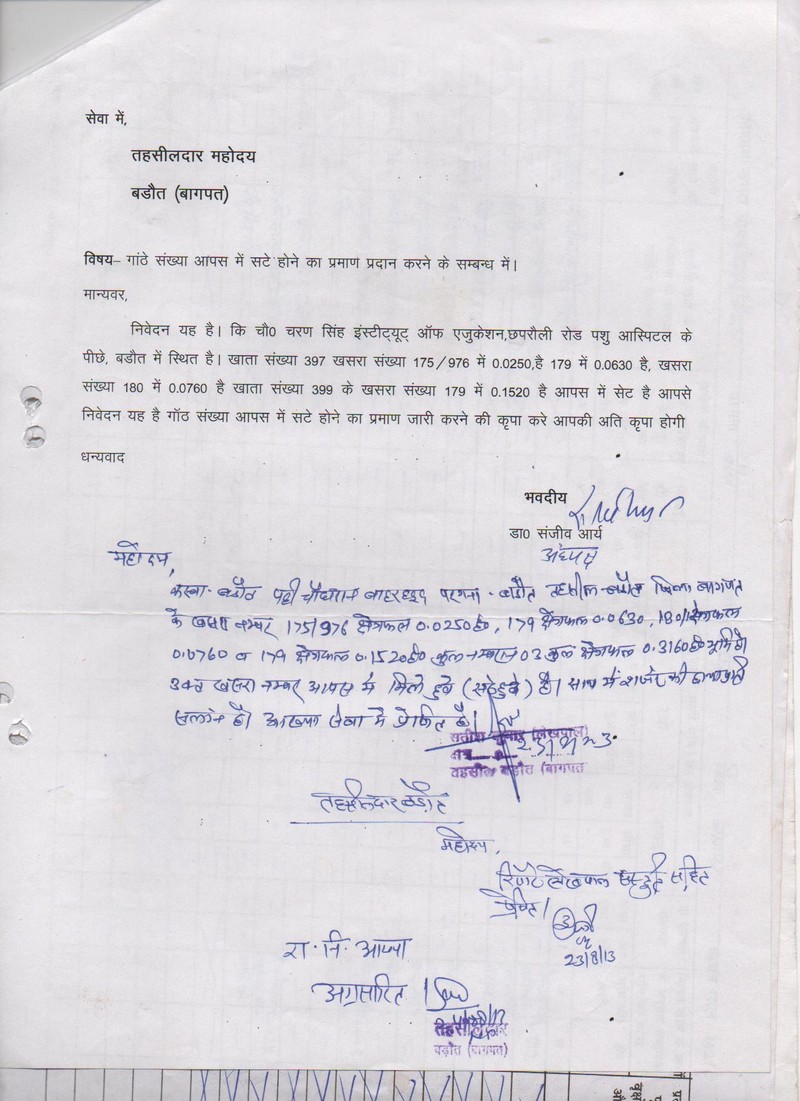 सेवा में,
तहसीलदार महोदय
बडौत (बागपत)
विषय– गांठे संख्या आपस में सटे होने का प्रमाण प्रदान करने के सम्बन्ध में।
मान्यवर,
निवेदन यह है। कि चौ0 चरण सिंह इंस्टीट्यूट् ऑफ एजुकेशन,छपरौली रोड पशु आस्पिटल के
पीछे, बडौत में स्थित है। खाता संख्या 397 खसरा संख्या 175/976 में 0.0250,है 179 में 0.0630 है, खसरा
संख्या 180 में 0.0760 है खाता संख्या 399 के खसरा संख्या 179 में 0.1520 है आपस में सेट है आपसे
निवेदन यह है गॉठ संख्या आपस में सटे होने का प्रमाण जारी करने की कृपा करे आपकी अति कृपा होगी
धन्यवाद
भवदीय
डा0 संजीव आर्य
अध्यक्ष
महोदय,
कस्बा-बडौत पट्टी चौधरान बाहरहदूद परगना-बडौत तहसील-बडौत जिला बागपत
के खसरा नम्बर 175/976 क्षेत्रफल 0.0250है0, 179 क्षेत्रफल 0.0630, 180/क्षेत्रफल
0.0760 व 179 क्षेत्रफल 0.1520है0 कुल नम्बरान 03 कुल क्षेत्रफल 0.3160है0 भूमि है।
उक्त खसरा नम्बर आपस में मिले हुवे (सटे हुवे) है। साथ में शजरे की
संलग्न है। आख्या सेवा में प्रेषित है।
सतीश कुमार (लेखपाल)
तहसील बडौत (बागपत
तहसीलदार बडौत
महोदय,
रिपोर्ट लेखपाल संस्तुति सहित
प्रेषित।
23/8/13
रा.नि. आख्या
अग्रसारित।
तहसीलदार
बड़ौत (बागपत)